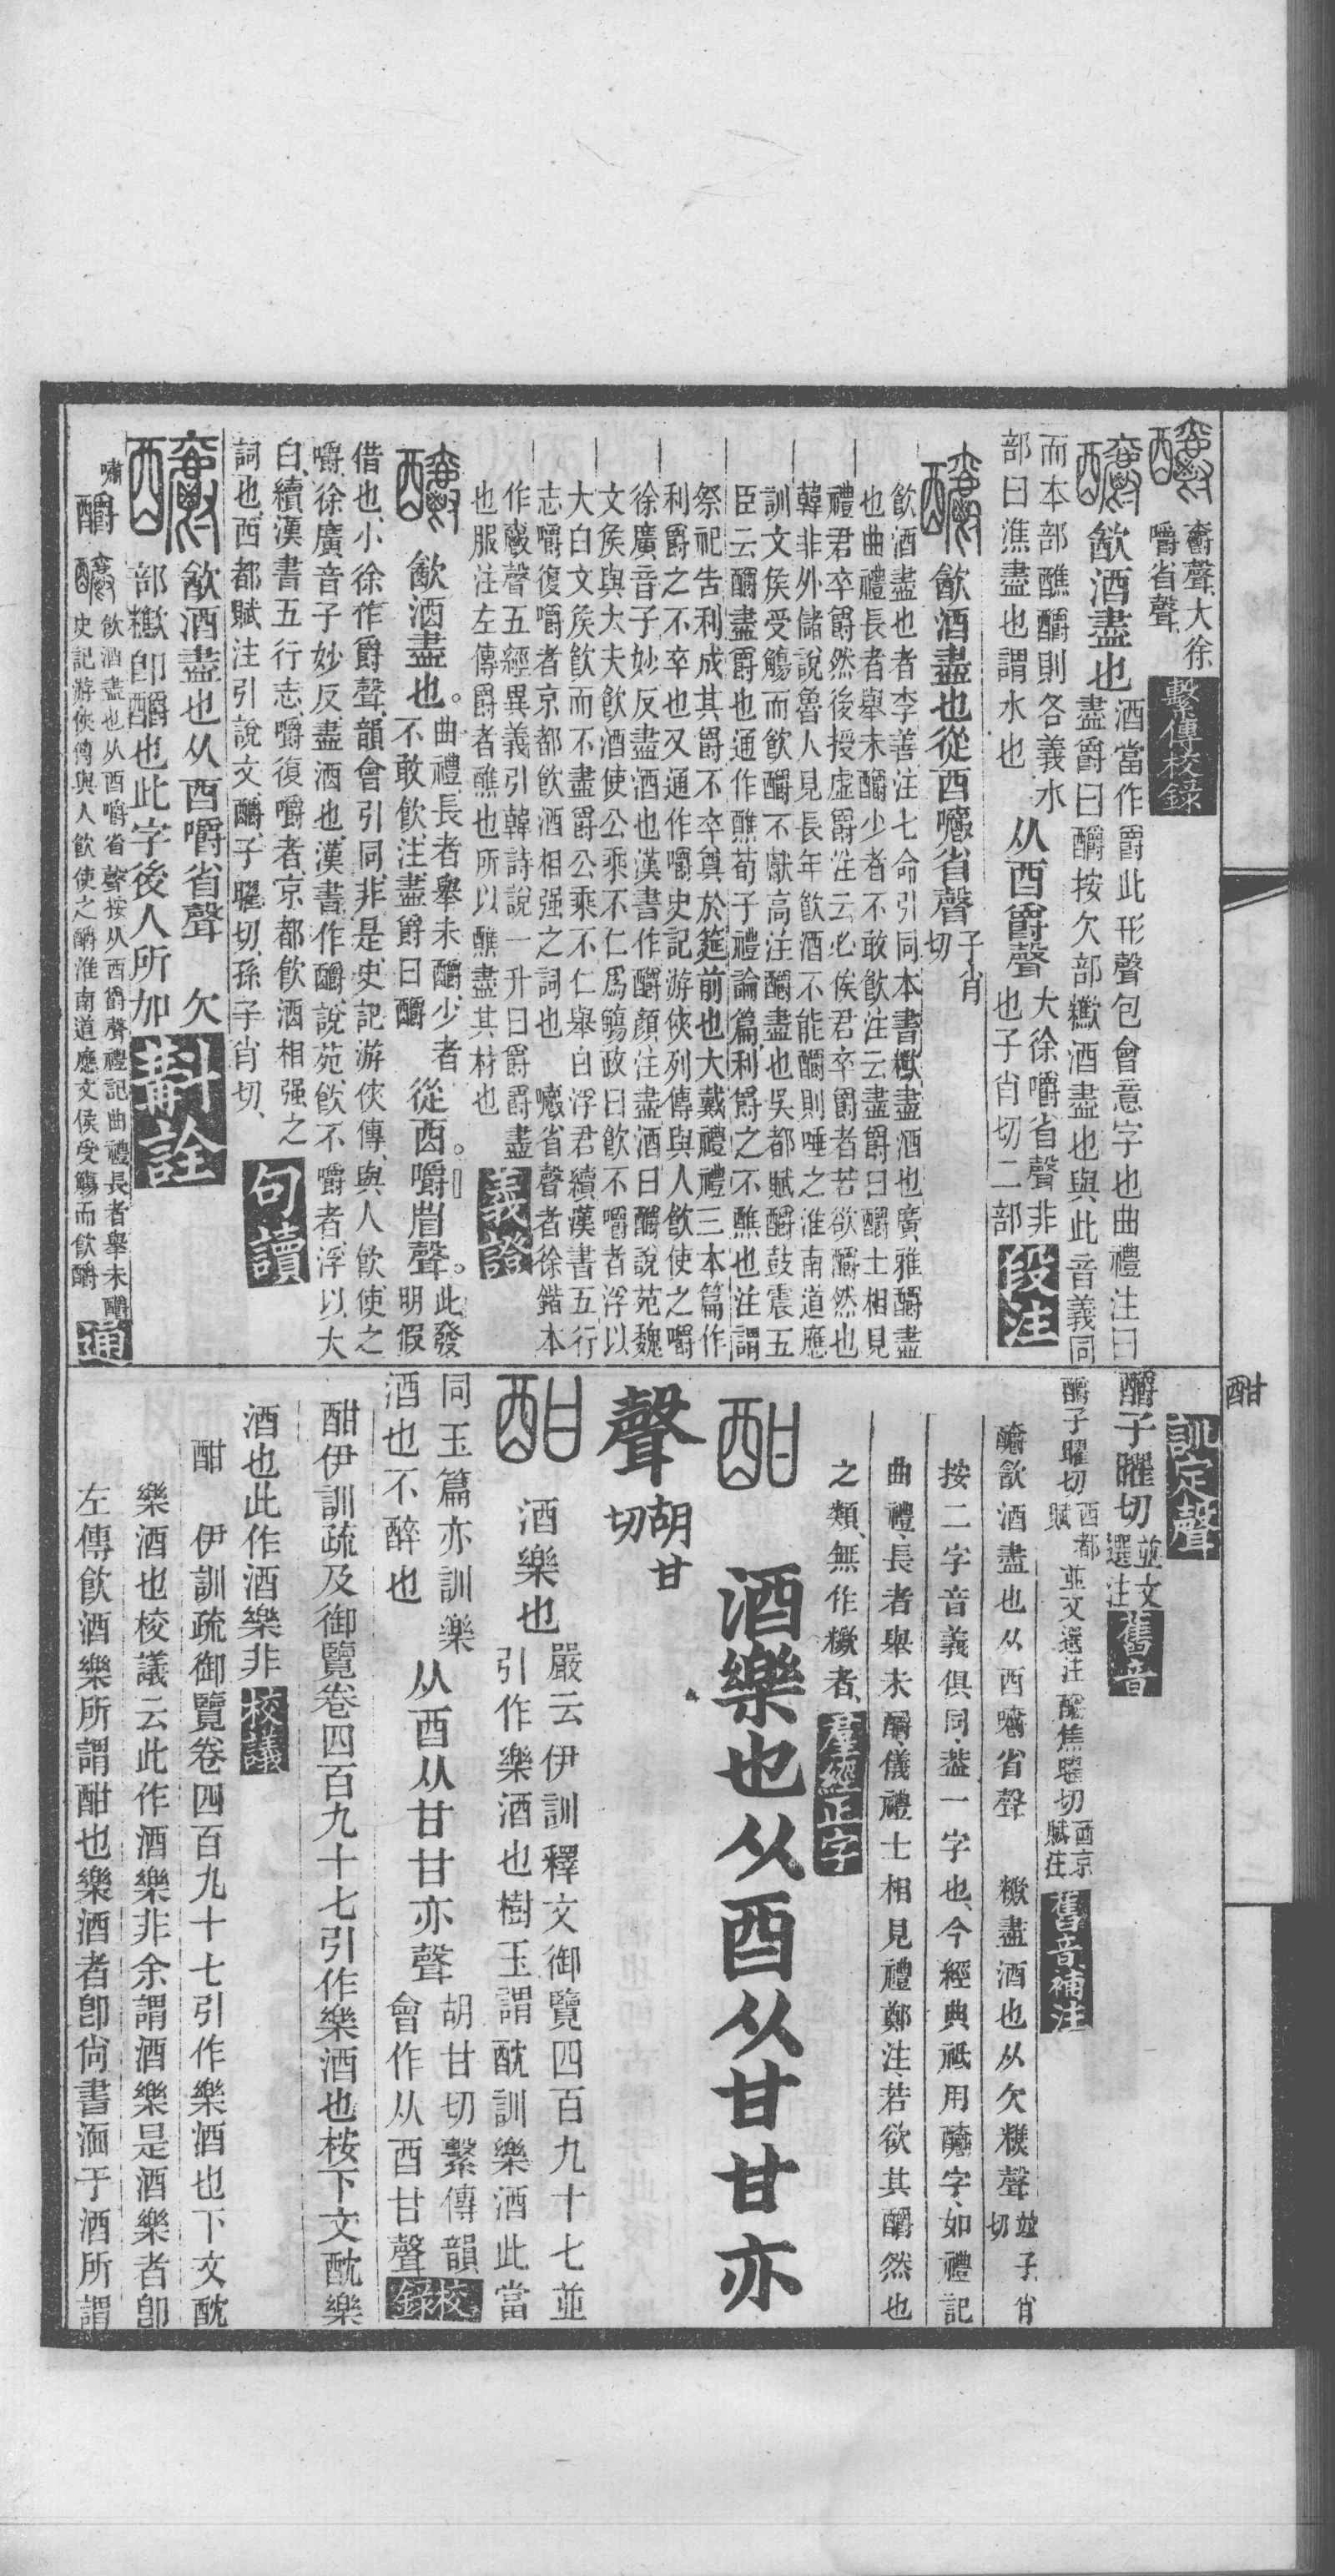 䣤聲大徐
嚼省聲
繫傳校錄
㱃酒盡也
酒當作爵此形聲包會意字也曲禮注曰
盡爵曰釂按欠部㰹酒盡也與此音義同
而本部醮釂則各義水
部曰漅盡也謂水也
从酉爵聲
大徐嚼省聲非
也子肖切二部
段注
㱃酒盡也從酉嚼省聲
子肖
切
飲酒盡也者李善注七命引同本書㰹盡酒也廣雅釂盡
也曲禮長者舉未釂少者不敢飲注云盡爵曰釂士相見
禮君卒爵然後授虛爵注云必俟君卒爵者若欲釂然也
韓非外儲說魯人見長年飲酒不能釂則唾之淮南道應
訓文侯受觴而飲釂不獻高注釂盡也吳都賦釂鼓震五
臣云釂盡爵也通作醮荀子禮論篇利爵之不醮也注謂
祭祀告利成其爵不卒奠於筵前也大戴禮禮三本篇作
利爵之不卒也又通作嚼史記游俠列傳與人飲使之嚼
徐廣音子妙反盡酒也漢書作釂顏注盡酒曰釂說苑魏
文侯與大夫飲酒使公乘不仁爲觴政曰飲不嚼者浮以
大白文侯飲而不盡爵公乘不仁舉白浮君續漢書五行
志嚼復嚼者京都飲酒相强之詞也 嚼省聲者徐鍇本
作爵聲五經異義引韓詩說一升曰爵爵盡
也服注左傳爵者醮也所以醮盡其材也
義證
㱃酒盡也。
曲禮長者舉未釂少者
不敢飲注盡爵曰釂
從酉嚼省聲。
此發明假
借也小徐作爵聲韻會引同非是史記游俠傳與人飲使之
嚼徐廣音子妙反盡酒也漢書作釂說苑飲不嚼者浮以大
白續漢書五行志嚼復嚼者京都飲酒相强之
詞也西都賦注引說文釂子曜切孫子肖切
句讀
㱃酒盡也从酉嚼省聲 欠
部㰹卽釂也此字後人所加
斠詮
嘯
釂
飲酒盡也从酉嚼省聲按从酉爵聲禮記曲禮長者舉未釂
史記游俠傳與人飲使之釂淮南道應文侯受觴而飲釂
通
訓定聲
釂子曜切
並文
選注
舊音
釂子曜切
西都
賦
並文選注
釂焦曜切
西京
賦注
舊音補注
釂㱃酒盡也从酉嚼省聲 㰹盡酒也从欠㯿聲
並子肖
切
按二字音義俱同葢一字也今經典祗用釂字如禮記
曲禮長者舉未釂儀禮士相見禮鄭注若欲其釂然也
之類無作㰹者
羣經正字
酒樂也从酉从甘甘亦
聲
胡甘
切
酒樂也
嚴云伊訓釋文御覽四百九十七並
引作樂酒也樹玉謂酖訓樂酒此當
同玉篇亦訓樂
酒也不醉也
从酉从甘甘亦聲
胡甘切繫傳韻
會作从酉甘聲
校錄
酣伊訓疏及御覽卷四百九十七引作樂酒也桉下文酖樂
酒也此作酒樂非
校議
酣 伊訓疏御覽卷四百九十七引作樂酒也下文酖
樂酒也校議云此作酒樂非余謂酒樂是酒樂者卽
左傳飲酒樂所謂酣也樂酒者卽尙書湎于酒所謂
酣